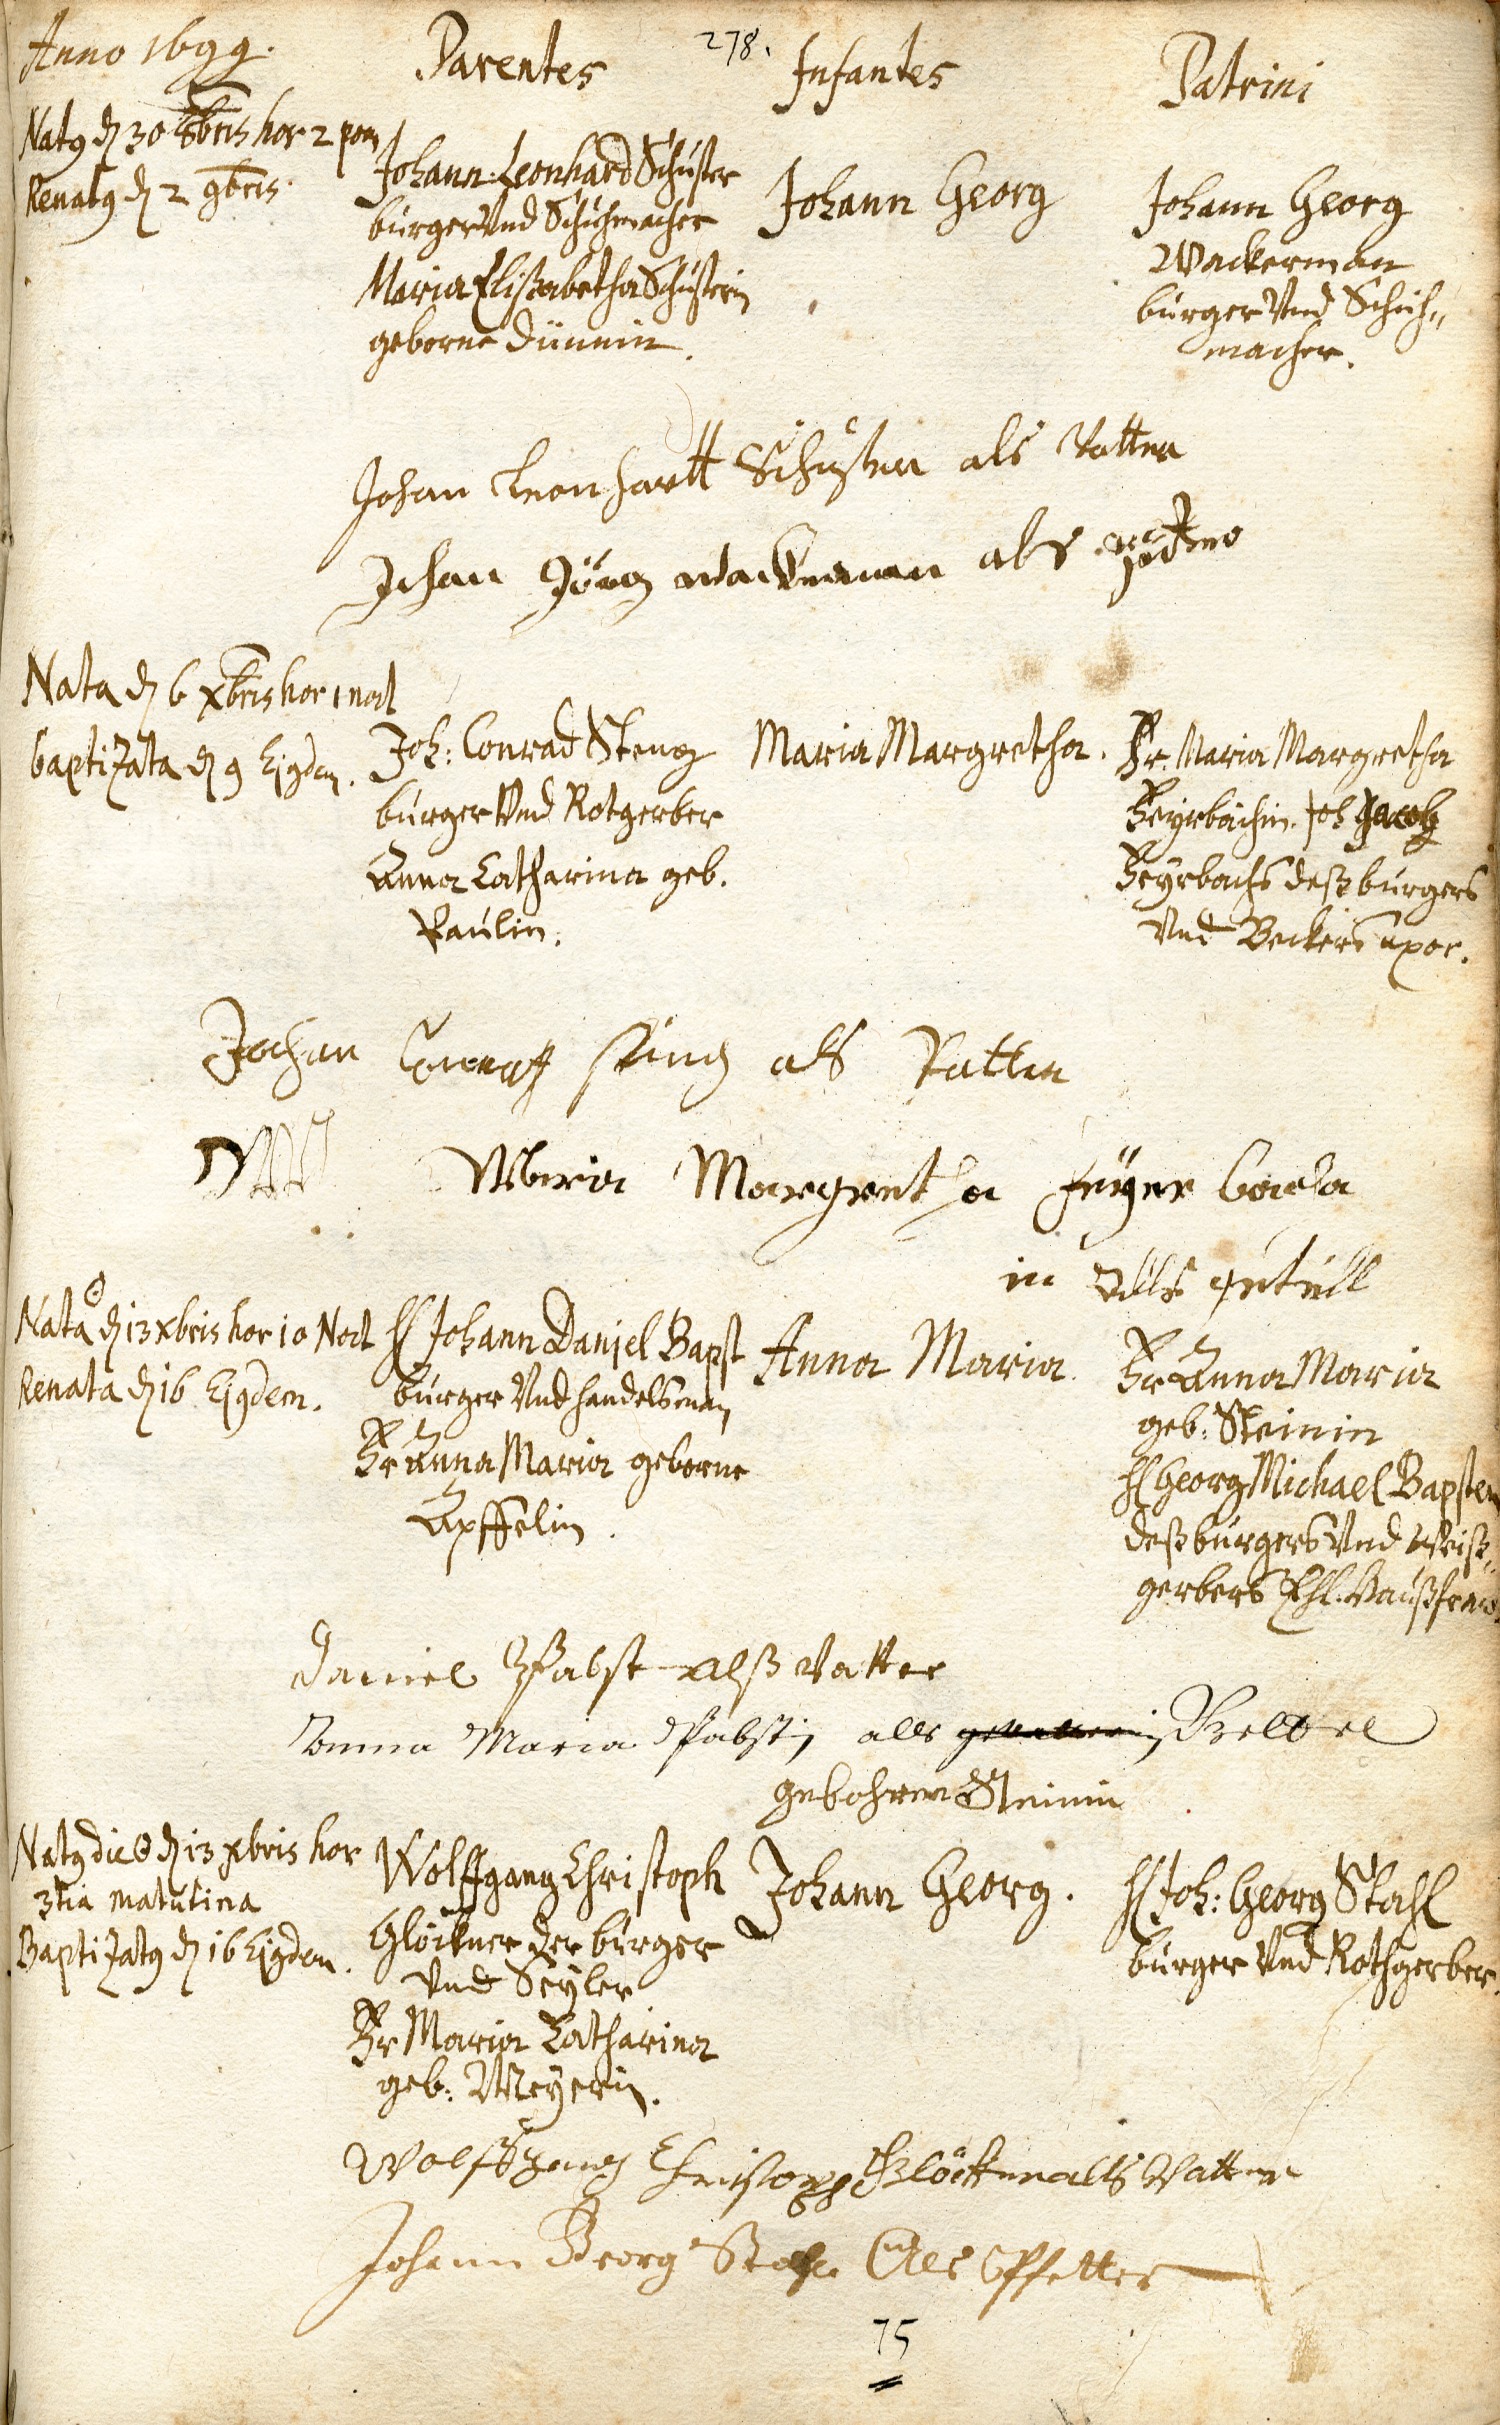 278.
Anno 1699.
Parentes
Infantes
Patrini
Natq d 30 8bris hor 2 pom
Renatq d 2 9bris.
Johann: Leonhard Schuster
burger Vnd Schuhmacher
Maria Elisabetha Schusterin
geborne Dünnin.
Johann Georg
Johann Georg
Wackerman
burger Vnd Schuh„
macher.
Johan Leonhartt Schuster als Vatter
Johan Jörg wackerman als
Nata d 6 xbris hor 1 noct
baptizata d 9 Ejqdem.
Joh: Conrad Steng
burger Vnd Rotgerber
Anna Catharina geb.
Paulin.
Maria Margretha.
Fr. Maria Margretha
Feyrbachin. Joh Jacob
Feyrbachs deß burgers
Vnd Beckers uxor.
Johan als Vatter
MM Maria Margretha feyer bacha
in Als
Nata d 13 xbris hor 10 Noct
Renata d 16 Ejqdem.
H Johann Daniel Bapst
burger Vnd handelsman
Fr Anna Maria geborne
Äpffelin.
Anna Maria.
Fr Anna Maria
geb: Steinin
H Georg Michael Bapsten
deß burgers Vnd Weiß„
gerbers Ehl. Haußfraw.
Daniel Pabst alß vatter
Anna Maria Pabstin alls
gebohrne Steinin
Natq die d 13 xbris hor
3tia matutina
Baptizatq d 16 Ejqdem.
Wolffgang Christoph
Glöckner der burger
Vnd Seyler
Fr Maria Catharina
geb: Meyerin.
Johann Georg.
H Joh: Georg Stahl
burger Vnd Rothgerber.
Wolffgang Christoph Glöckner alls Vatter
Johann Georg Stahl Als Pfetter
75